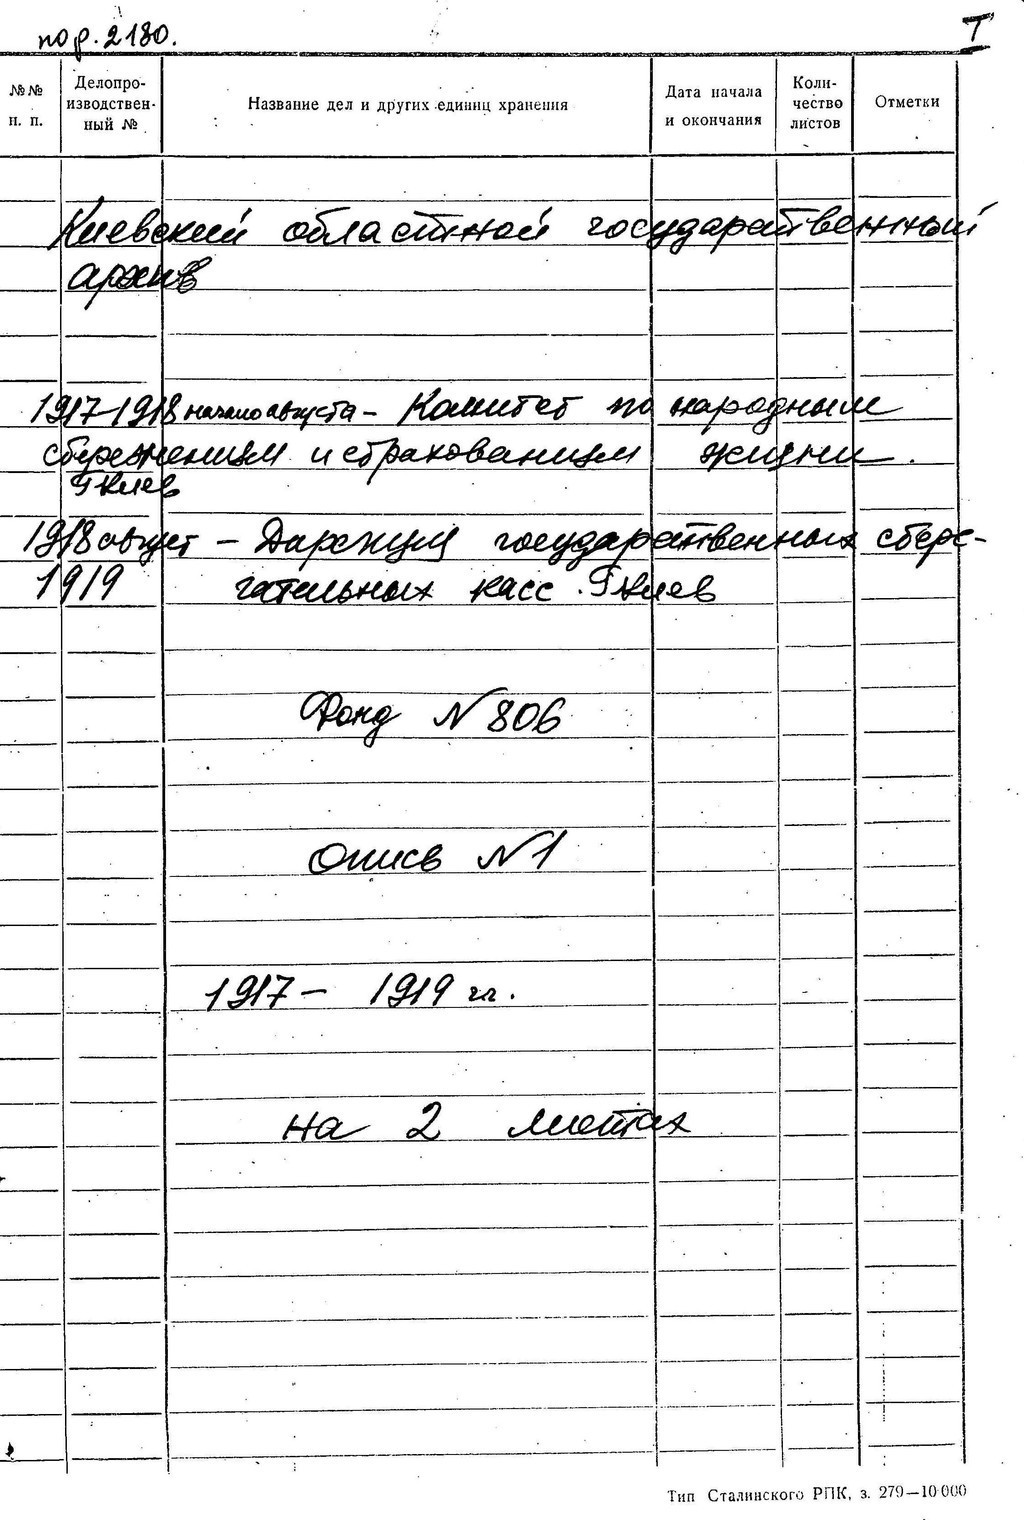 пор. 2180.
I
№№ п. п.
Делопроизводственный №
Название дел и других единиц хранения
Дата начала и окончания
Количество листов
Отметки
Киевский областной государственный
архив
1917-1918 начало августа - Комитет по народным
сбережениям и страхованиям жизни.
г Киев
1918 август - государственных сбере-
1919 гательных касс. г Киев
Фонд N 806
Опись N 1
1917 - 1919 гг.
на 2 листах
Тип Сталинского РПК, з. 279—10 000